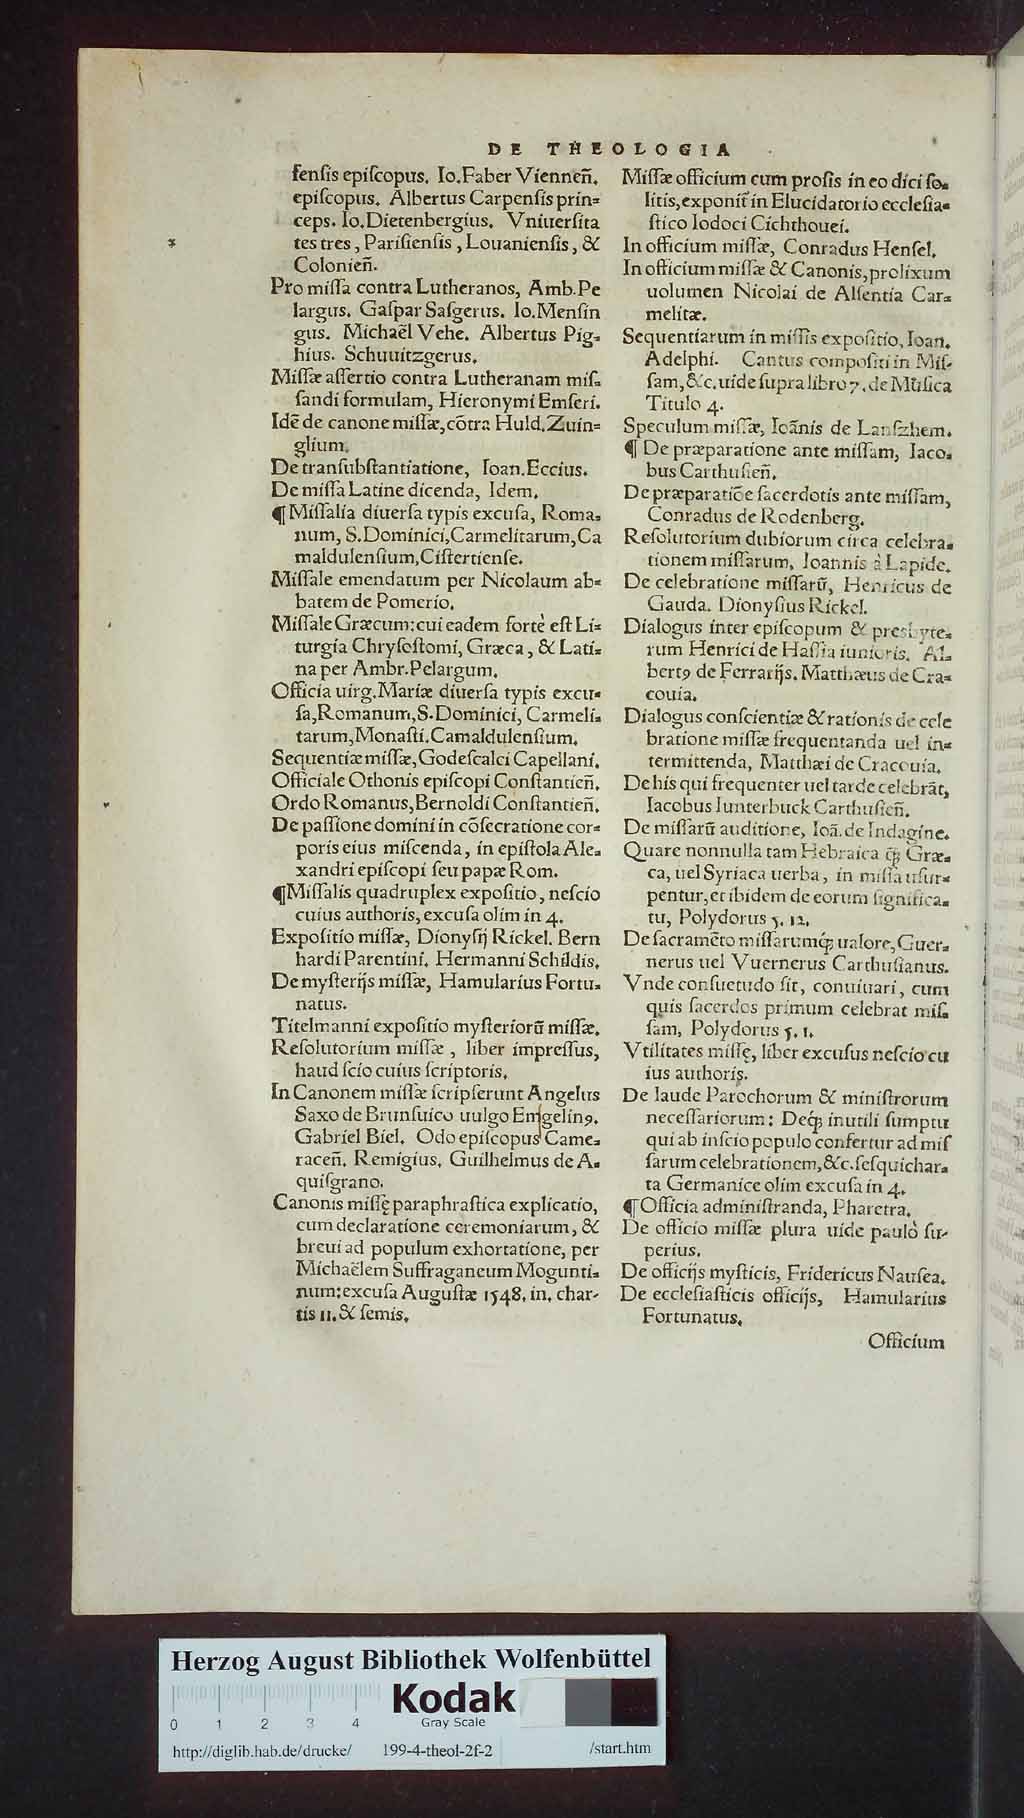 DE THEOLOGIA
ſenſis epiſcopus. Io. Faber Vienneñ.
epiſcopus. Albertus Carpenſis prin=
ceps. Io. Dietenbergius. Vniuerſita
tes tres, Pariſienſis, Louanienſis, &
Colonieñ.
Pro miſſa contra Lutheranos, Amb. Pe
largus. Gaſpar Saſgerus. Io. Menſin
gus. Michaël Vehe. Albertus Pig=
hius. Schuuitzgerus.
Miſſæ aſſertio contra Lutheranam miſ=
ſandi formulam, Hieronymi Emſeri.
Idẽ de canone miſſæ, cõtra Huld. Zuin=
glium.
De tranſubſtantiatione, Ioan. Eccius.
De miſſa Latine dicenda, Idem.
¶ Miſſalia diuerſa typis excuſa, Roma=
num, S. Dominici, Carmelitarum, Ca
maldulenſium, Ciſtertienſe.
Miſſale emendatum per Nicolaum ab=
batem de Pomerio.
Miſſale Græcum: cui eadem fortè eſt Li=
turgia Chryſoſtomi, Græca, & Lati=
na per Ambr. Pelargum.
Officia uirg. Mariæ diuerſa typis excu=
ſa, Romanum, S. Dominici, Carmeli=
tarum, Monaſti. Camaldulenſium.
Sequentiæ miſſæ, Godeſcalci Capellani.
Officiale Othonis epiſcopi Conſtantieñ.
Ordo Romanus, Bernoldi Conſtantieñ.
De paſſione domini in cõſecratione cor=
poris eius miſcenda, in epiſtola Ale=
xandri epiſcopi ſeu papæ Rom.
¶ Miſſalis quadruplex expoſitio, neſcio
cuius authoris, excuſa olim in 4.
Expoſitio miſſæ, Dionyſij Rickel. Bern
hardi Parentini. Hermanni Schildis.
De myſterijs miſſæ, Hamularius Fortu=
natus.
Titelmanni expoſitio myſteriorũ miſſæ.
Reſolutorium miſſæ, liber impreſſus,
haud ſcio cuius ſcriptoris.
In Canonem miſſæ ſcripſerunt Angelus
Saxo de Brunſuico uulgo Emgelinꝰ.
Gabriel Biel. Odo epiſcopus Came=
raceñ. Remigius. Guilhelmus de A=
quiſgrano.
Canonis miſſę paraphraſtica explicatio,
cum declaratione ceremoniarum, &
breui ad populum exhortatione, per
Michaëlem Suffraganeum Mogunti=
num: excuſa Auguſtæ 1548. in. char-
tis 11. & ſemis.
Miſſæ officium cum proſis in eo dici ſo=
litis, exponit̃ in Elucidatorio eccleſia=
ſtico Iodoci Cichthouei.
In officium miſſæ, Conradus Henſel.
In officium miſſæ & Canonis, prolixum
uolumen Nicolai de Alſentia Car=
melitæ.
Sequentiarum in miſſis expoſitio, Ioan.
Adelphi. Cantus compoſiti in Miſ=
ſam, &c. uide ſupra libro 7. de Muſica
Titulo 4.
Speculum miſſæ, Ioãnis de Lanſzhem.
¶ De præparatione ante miſſam, Iaco=
bus Carthuſieñ.
De præparatiõe ſacerdotis ante miſſam,
Conradus de Rodenberg.
Reſolutorium dubiorum circa celebra=
tionem miſſarum, Ioannis à Lapide.
De celebratione miſſarũ, Henricus de
Gauda. Dionyſius Rickel.
Dialogus inter epiſcopum & presbyte=
rum Henrici de Haſſia iunioris. Al=
bertꝰ de Ferrarijs. Matthæus de Cra=
couia.
Dialogus conſcientiæ & rationis de cele
bratione miſſæ frequentanda uel in=
termittenda, Matthæi de Cracouia.
De his qui frequenter uel tarde celebrãt,
Iacobus Iunterbuck Carthuſieñ.
De miſſarũ auditione, Ioã. de Indagine.
Quare nonnulla tam Hebraica q̃ꝫ Græ=
ca, uel Syriaca uerba, in miſſa uſur=
pentur, et ibidem de eorum ſignifica=
tu, Polydorus 5. 12.
De ſacramẽto miſſarumq́ꝫ ualore, Guer=
nerus uel Vuernerus Carthuſianus.
Vnde conſuetudo ſit, conuiuari, cum
quis ſacerdos primum celebrat miſ=
ſam, Polydorus 5. 1.
Vtilitates miſſę, liber excuſus neſcio cu
ius authoris.
De laude Parochorum & miniſtrorum
neceſſariorum: Deq́ꝫ inutili ſumptu
qui ab inſcio populo confertur ad miſ
ſarum celebrationem, &c. ſeſquichar=
ta Germanice olim excuſa in 4.
¶ Officia adminiſtranda, Pharetra.
De officio miſſæ plura uide paulò ſu-
perius.
De officijs myſticis, Fridericus Nauſea.
De eccleſiaſticis officijs, Hamularius
Fortunatus.
Officium
Herzog August Bibliothek Wolfenbüttel
0 1 2 3 4
Kodak
Gray Scale
http://diglib.hab.de/drucke/ 199-4-theol-2f-2 /start.htm